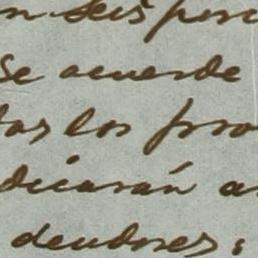 n seis porc
se acuerde
das los pro
dicarán a
deudores;